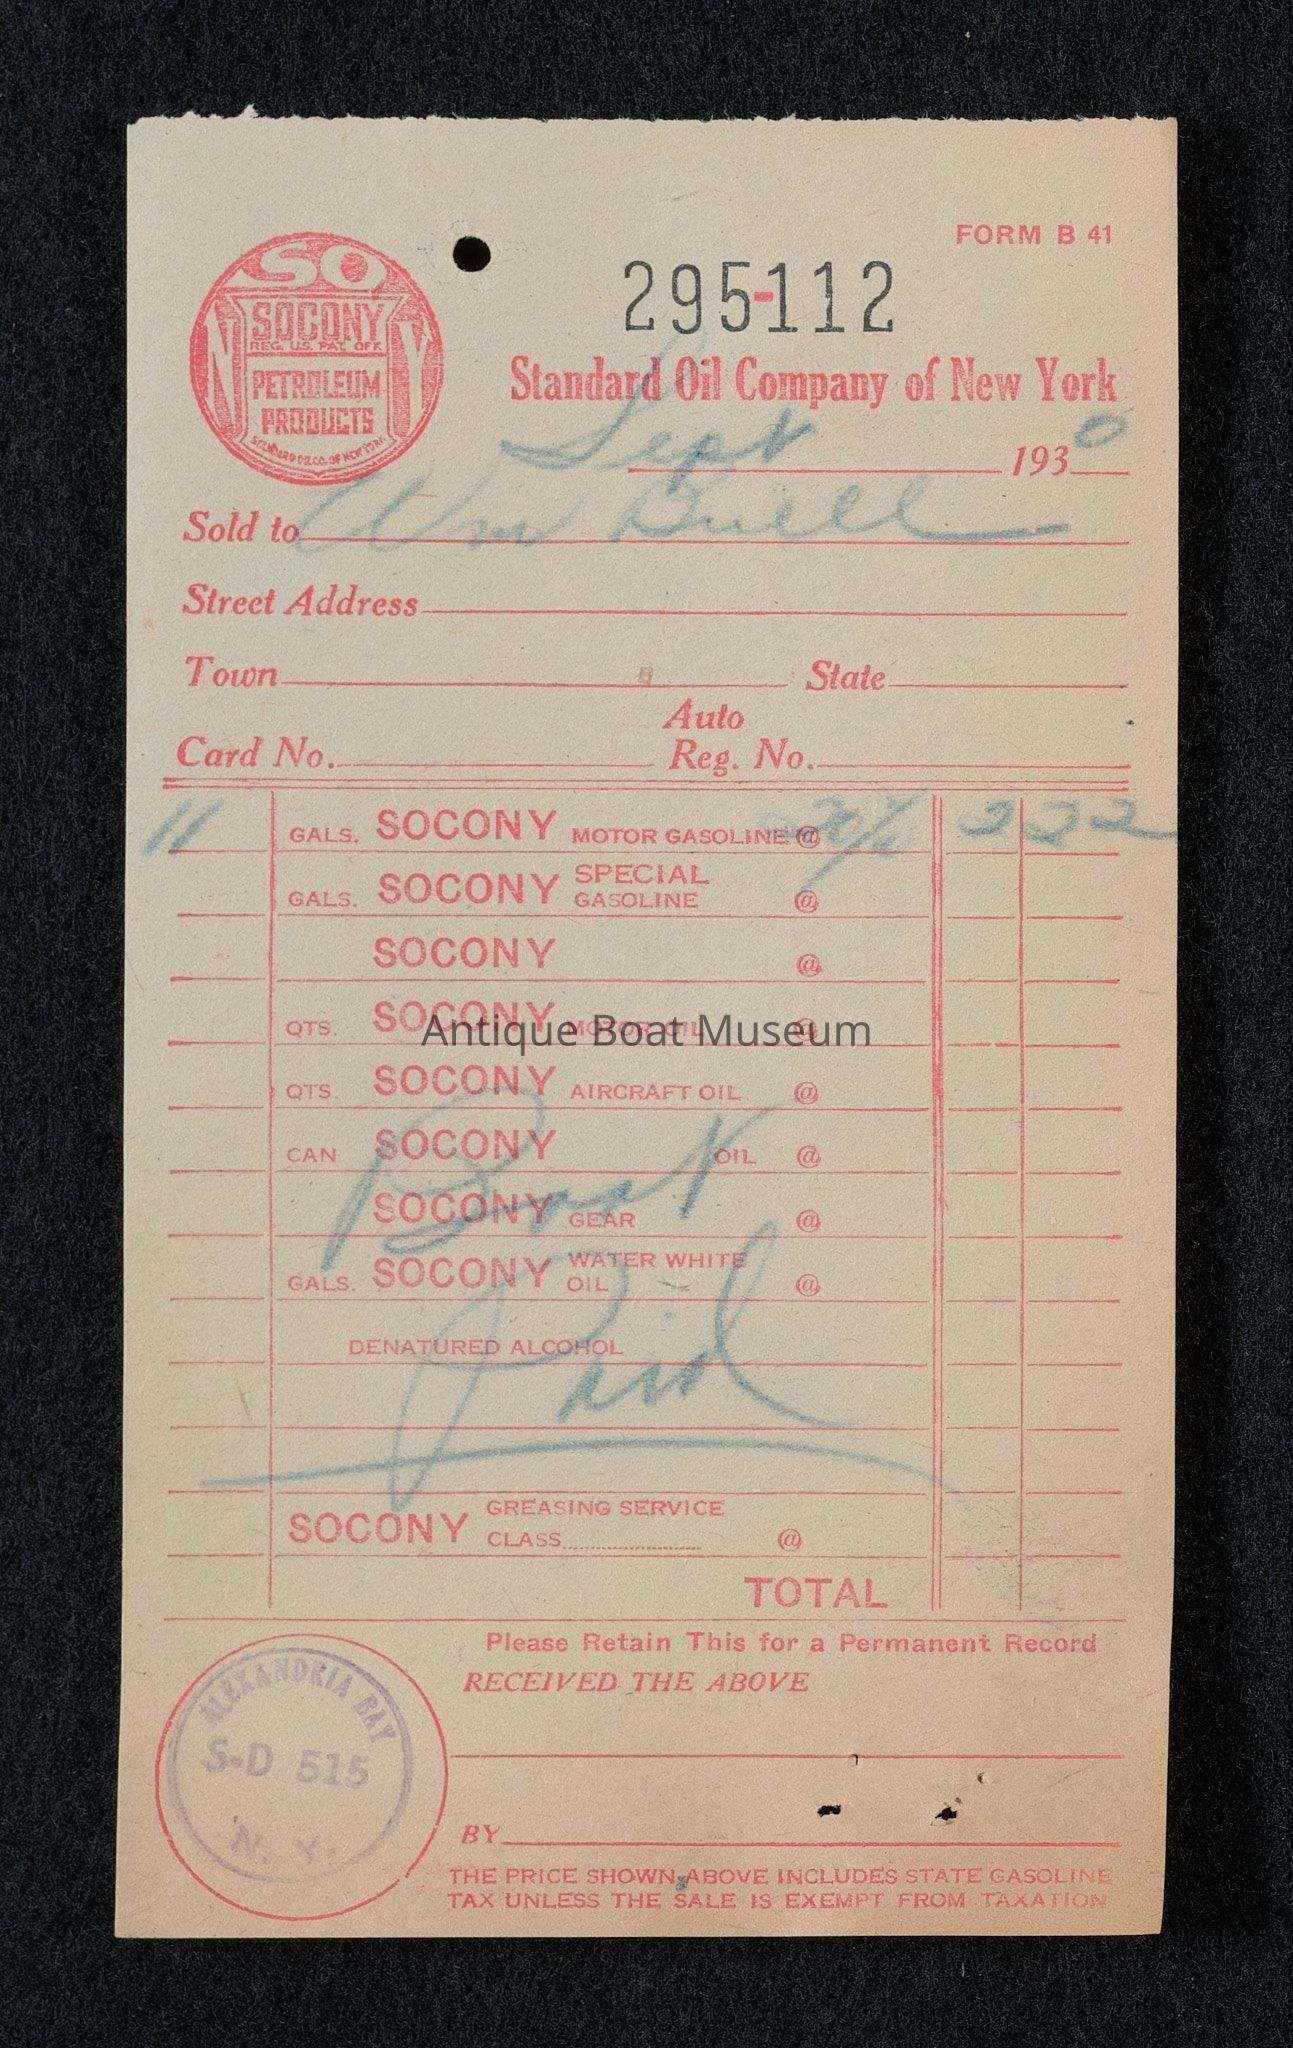 FORM B 41
SO
NY
SOCONY
REG. U.S. PAT. OFF.
PETROLEUM
PRODUCTS
STANDARD OIL CO. OF NEW YORK
295-112
Standard Oil Company of New York
Sept 1930
Sold to Wm Buell
Street Address
Town State
Auto
Card No. Reg. No.
11 GALS. SOCONY MOTOR GASOLINE @ 2 22
GALS. SOCONY SPECIAL GASOLINE @
SOCONY @
QTS. SOCONY MOTOR OIL @
Antique Boat Museum
QTS. SOCONY AIRCRAFT OIL @
CAN SOCONY OIL @
Boat
SOCONY GEAR @
GALS. SOCONY WATER WHITE OIL @
DENATURED ALCOHOL
Paid
SOCONY GREASING SERVICE
CLASS @
TOTAL
Please Retain This for a Permanent Record
RECEIVED THE ABOVE
ALEXANDRIA BAY
S-D 515
N. Y.
BY
THE PRICE SHOWN ABOVE INCLUDES STATE GASOLINE
TAX UNLESS THE SALE IS EXEMPT FROM TAXATION